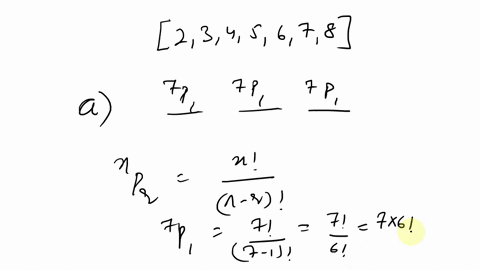 [2,3,4,5,6,7,8]
a) ⁷P₁ ⁷P₁ ⁷P₁
ⁿPᵣ = n! / (n-r)!
⁷P₁ = 7! / (7-1)! = 7! / 6! = 7×6!